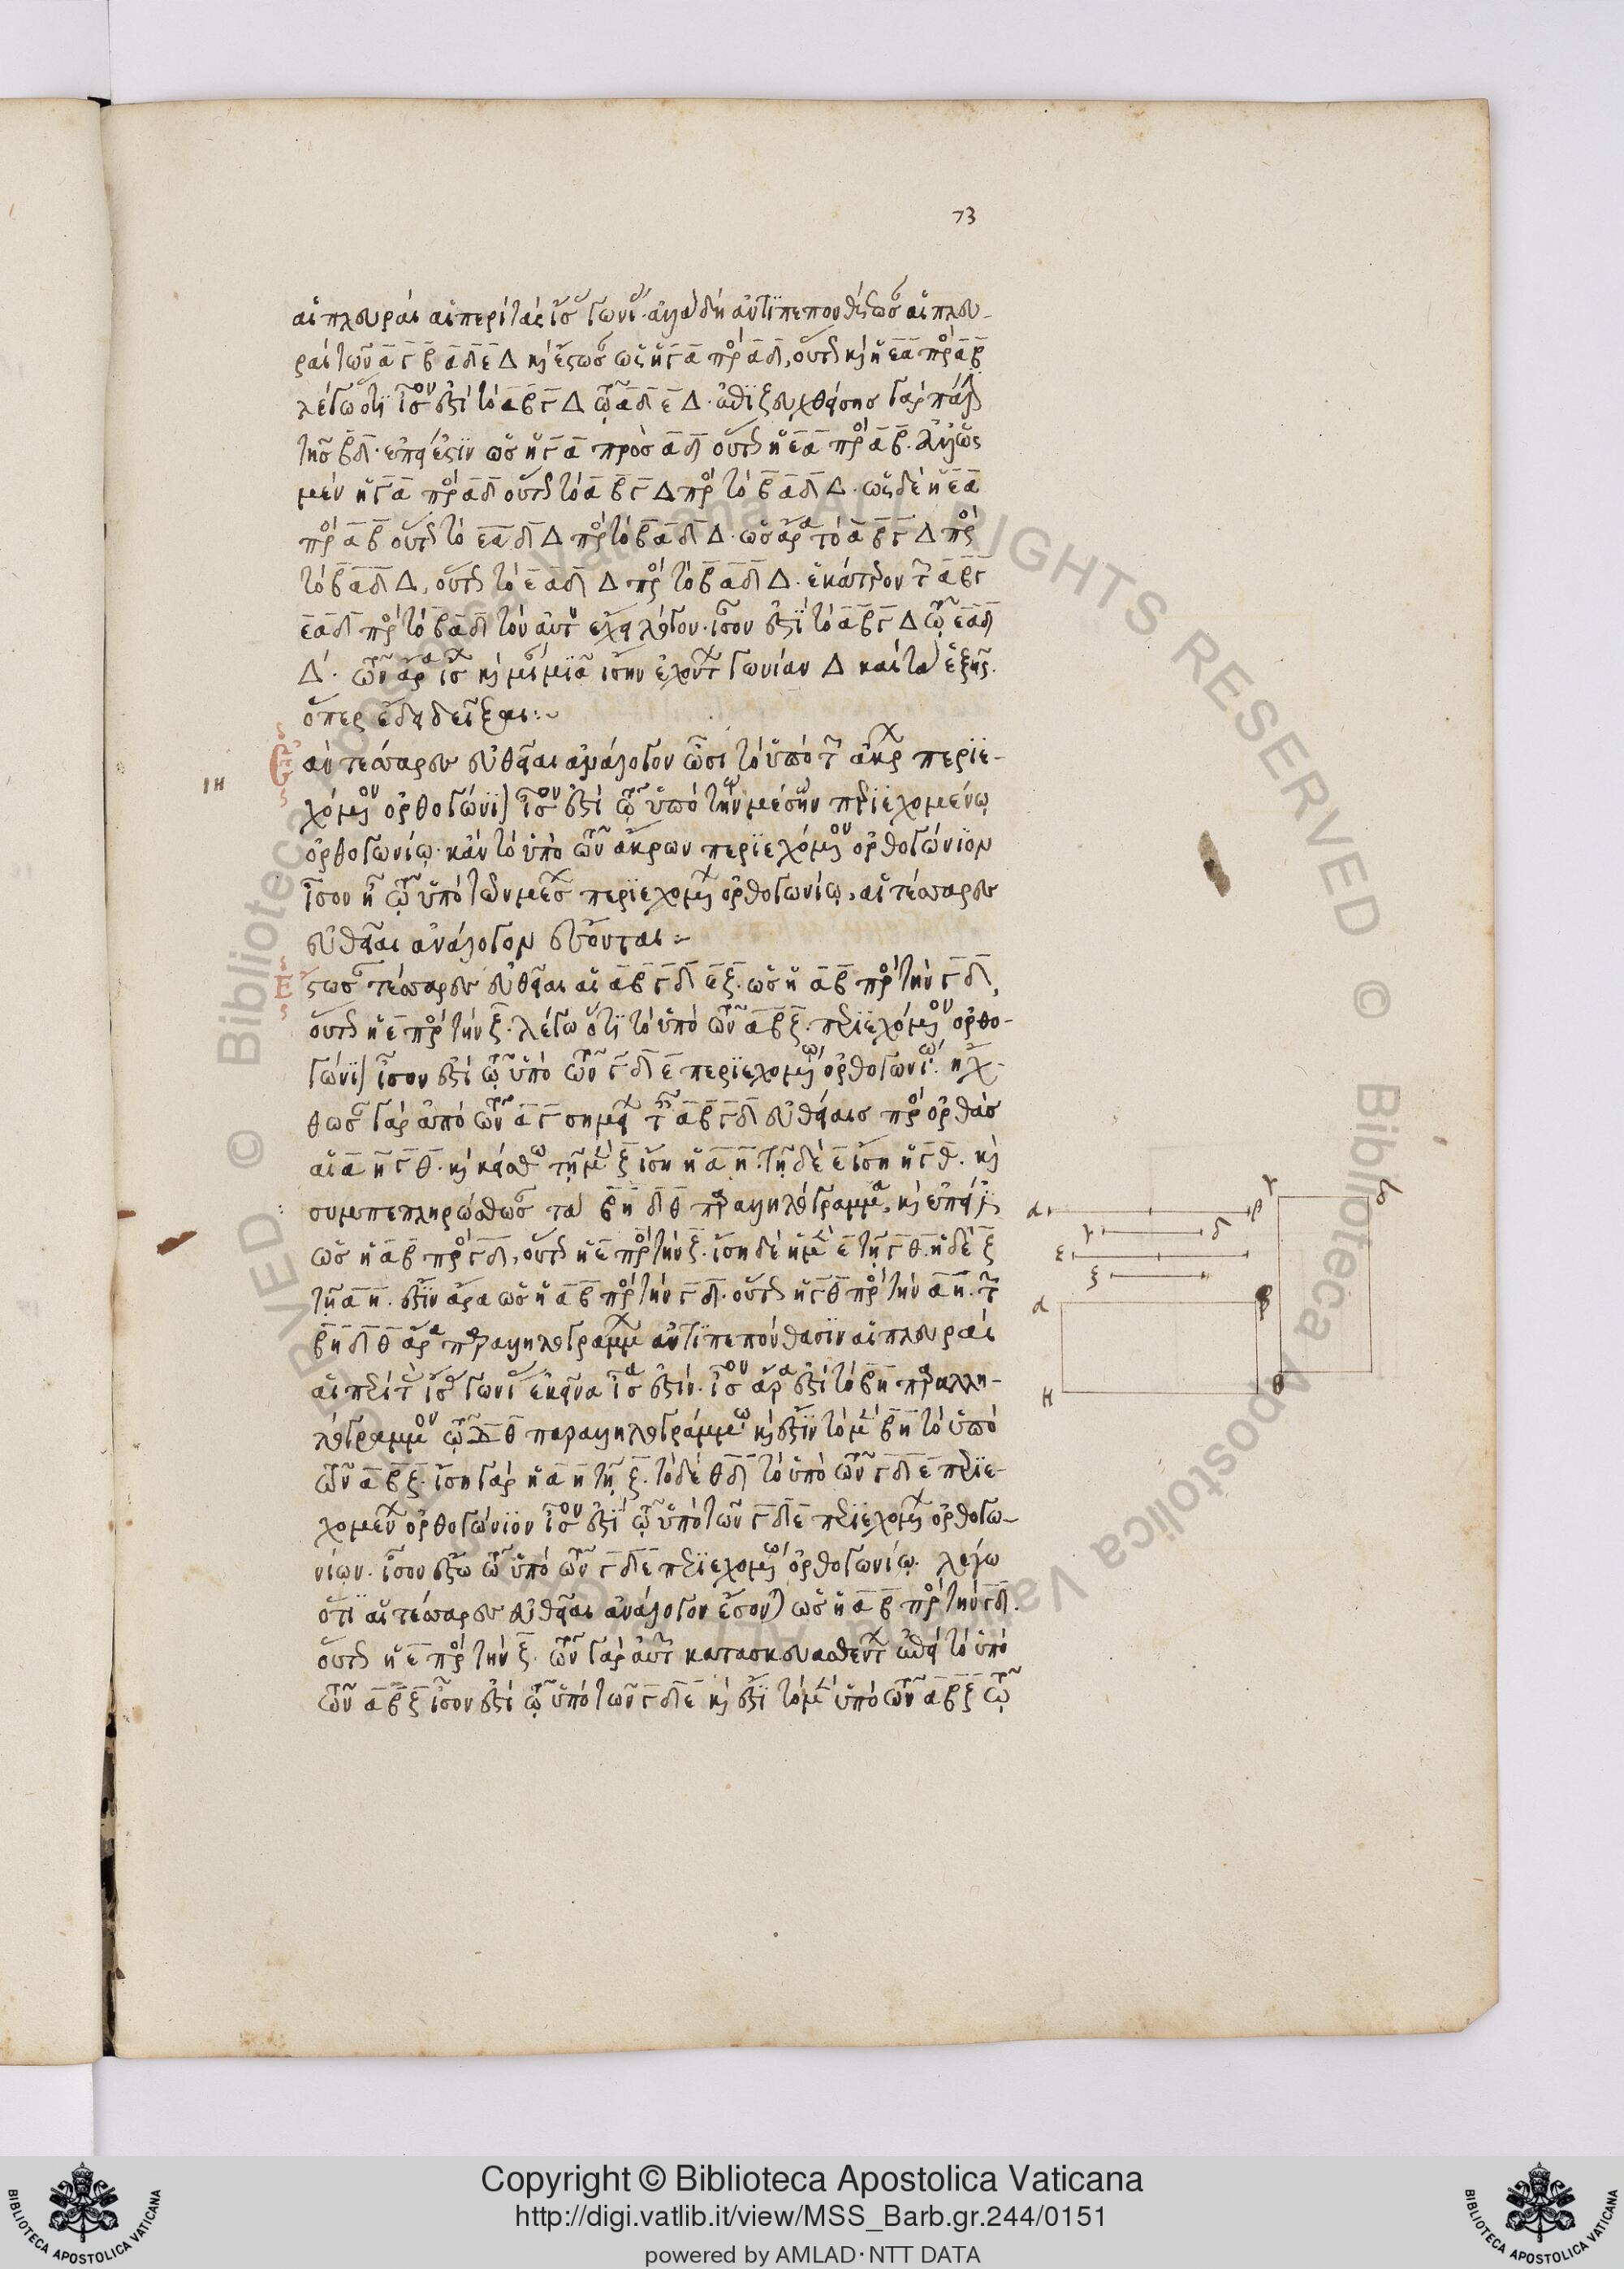 73
αἱ πλευραὶ αἱ περὶ τὰς ἴσ γωνί· ἀλλὰ δὴ ἀντιπεπονθέτωσ αἱ πλευ-
ραὶ τῶν α γ β α δ ε Δ κὶ ἔστωσ ὡς ἡ γ α πρ α δ, οὕτως κὶ ἡ ε α πρ α β
λέγω ὅτι ἴσον ἐστὶ τὸ α β γ Δ τῷ α δ ε Δ· ἐπιζευχθείσησ γὰρ πάλ
τῆσ β δ· ἐπεί ἐστιν ὡσ ἡ γ α πρὸσ α δ οὕτως ἡ ε α πρ α β· ἀλλ' ὡς
μὲν ἡ γ α πρ α δ οὕτως τὸ α β γ Δ πρ τὸ β α δ Δ· ὡς δὲ ἡ ε α
πρ α β οὕτως τὸ ε α δ Δ πρ τὸ β α δ Δ· ὡσ ἄρα τὸ α β γ Δ πρ
τὸ β α δ Δ, οὕτως τὸ ε α δ Δ πρ τὸ β α δ Δ· ἑκάτερον τ α β γ
ε α δ πρ τὸ β α δ τὸν αὐτ ἔχει λόγον· ἴσον ἐστὶ τὸ α β γ Δ τῷ ε α δ
Δ· τῶν ἄρα ἴσ κὶ μίαν μιᾶ ἴσην ἐχόντ γωνίαν Δ καὶ τὰ ἑξῆς·
ὅπερ ἔδει δεῖξαι:~
ΙΗ
Ἐὰν τέσσαρεσ εὐθεῖαι ἀνάλογον ὦσι τὸ ὑπὸ τ ἄκρ περιε-
χόμενον ὀρθογώνι ἴσον ἐστὶ τῷ ὑπὸ τῶν μέσων περιεχομένῳ
ὀρθογωνίῳ· κἂν τὸ ὑπὸ τῶν ἄκρων περιεχόμενον ὀρθογώνιον
ἴσον ἦ τῷ ὑπὸ τῶν μέσ περιεχομ ὀρθογωνίῳ, αἱ τέσσαρεσ
εὐθεῖαι ἀνάλογον ἔσονται:~
Ἔστωσ τέσσαρεσ εὐθεῖαι αἱ α β γ δ ε ξ· ὡσ ἡ α β πρ τὴν γ δ,
οὕτως ἡ ε πρ τὴν ξ· λέγω ὅτι τὸ ὑπὸ τῶν α β ξ· περιεχόμενον ὀρθο-
γώνι ἴσον ἐστὶ τῷ ὑπὸ τῶν γ δ ε περιεχομένῳ ὀρθογωνίῳ· ἤχ-
θωσ γὰρ ἀπὸ τῶν α γ σημεί τ α β γ δ εὐθείαισ πρ ὀρθὰσ
αἱ α η γ θ· κὶ κείσθω τῇ μὲν ξ ἴση ἡ α η· τῇ δὲ ε ἴση ἡ γ θ· κὶ
συμπεπληρώσθωσ τὰ β η δ θ παραλληλόγραμμα, κὶ ἐπεί
ὡσ ἡ α β πρ γ δ, οὕτως ἡ ε πρ τὴν ξ· ἴση δὲ ἡ μὲν ε τῇ γ θ· ἡ δὲ ξ
τῇ α η· ἔστιν ἄρα ὡσ ἡ α β πρ τὴν γ δ· οὕτως ἡ γ θ πρ τὴν α η· τ
β η δ θ ἄρα παραλληλογράμμ ἀντιπεπόνθασιν αἱ πλευραὶ
αἱ περὶ τ ἴσ γωνί ἐκεῖνα ἴσα ἐστίν· ἴσον ἄρα ἐστὶ τὸ β η παραλλη-
λόγραμμον τῷ Δ θ παραλληλογράμμῳ κὶ ἔστιν τὸ μὲν β η τὸ ὑπὸ
τῶν α β ξ· ἴση γὰρ ἡ α η τῇ ξ· τὸ δὲ θ δ τὸ ὑπὸ τῶν γ δ ε περιε-
χομεν ὀρθογώνιον ἴσον ἐστὶ τῷ ὑπὸ τῶν γ δ ε περιεχομ ὀρθογω-
νίων· ἴσον ἔστω τῷ ὑπὸ τῶν γ δ ε περιεχομένῳ ὀρθογωνίῳ· λέγω
ὅτι αἱ τέσσαρεσ εὐθεῖαι ἀνάλογον ἔσον ὡσ ἡ α β πρ τὴν γ δ·
οὕτως ἡ ε πρ τὴν ξ· τῶν γὰρ αὐτ κατασκευασθέντ ἐπεὶ τὸ ὑπὸ
τῶν α β ξ ἴσον ἐστὶ τῷ ὑπὸ τῶν γ δ ε κὶ ἐστὶ τὸ μὲν ὑπὸ τῶν α β ξ τῷ
α β
γ δ
ε
ξ
α β
Η θ
γ δ
Copyright © Biblioteca Apostolica Vaticana
http://digi.vatlib.it/view/MSS_Barb.gr.244/0151
powered by AMLAD·NTT DATA
BIBLIOTECA APOSTOLICA VATICANA
BIBLIOTECA APOSTOLICA VATICANA
© Biblioteca Apostolica Vaticana ALL RIGHTS RESERVED
© Biblioteca Apostolica Vaticana ALL RIGHTS RESERVED